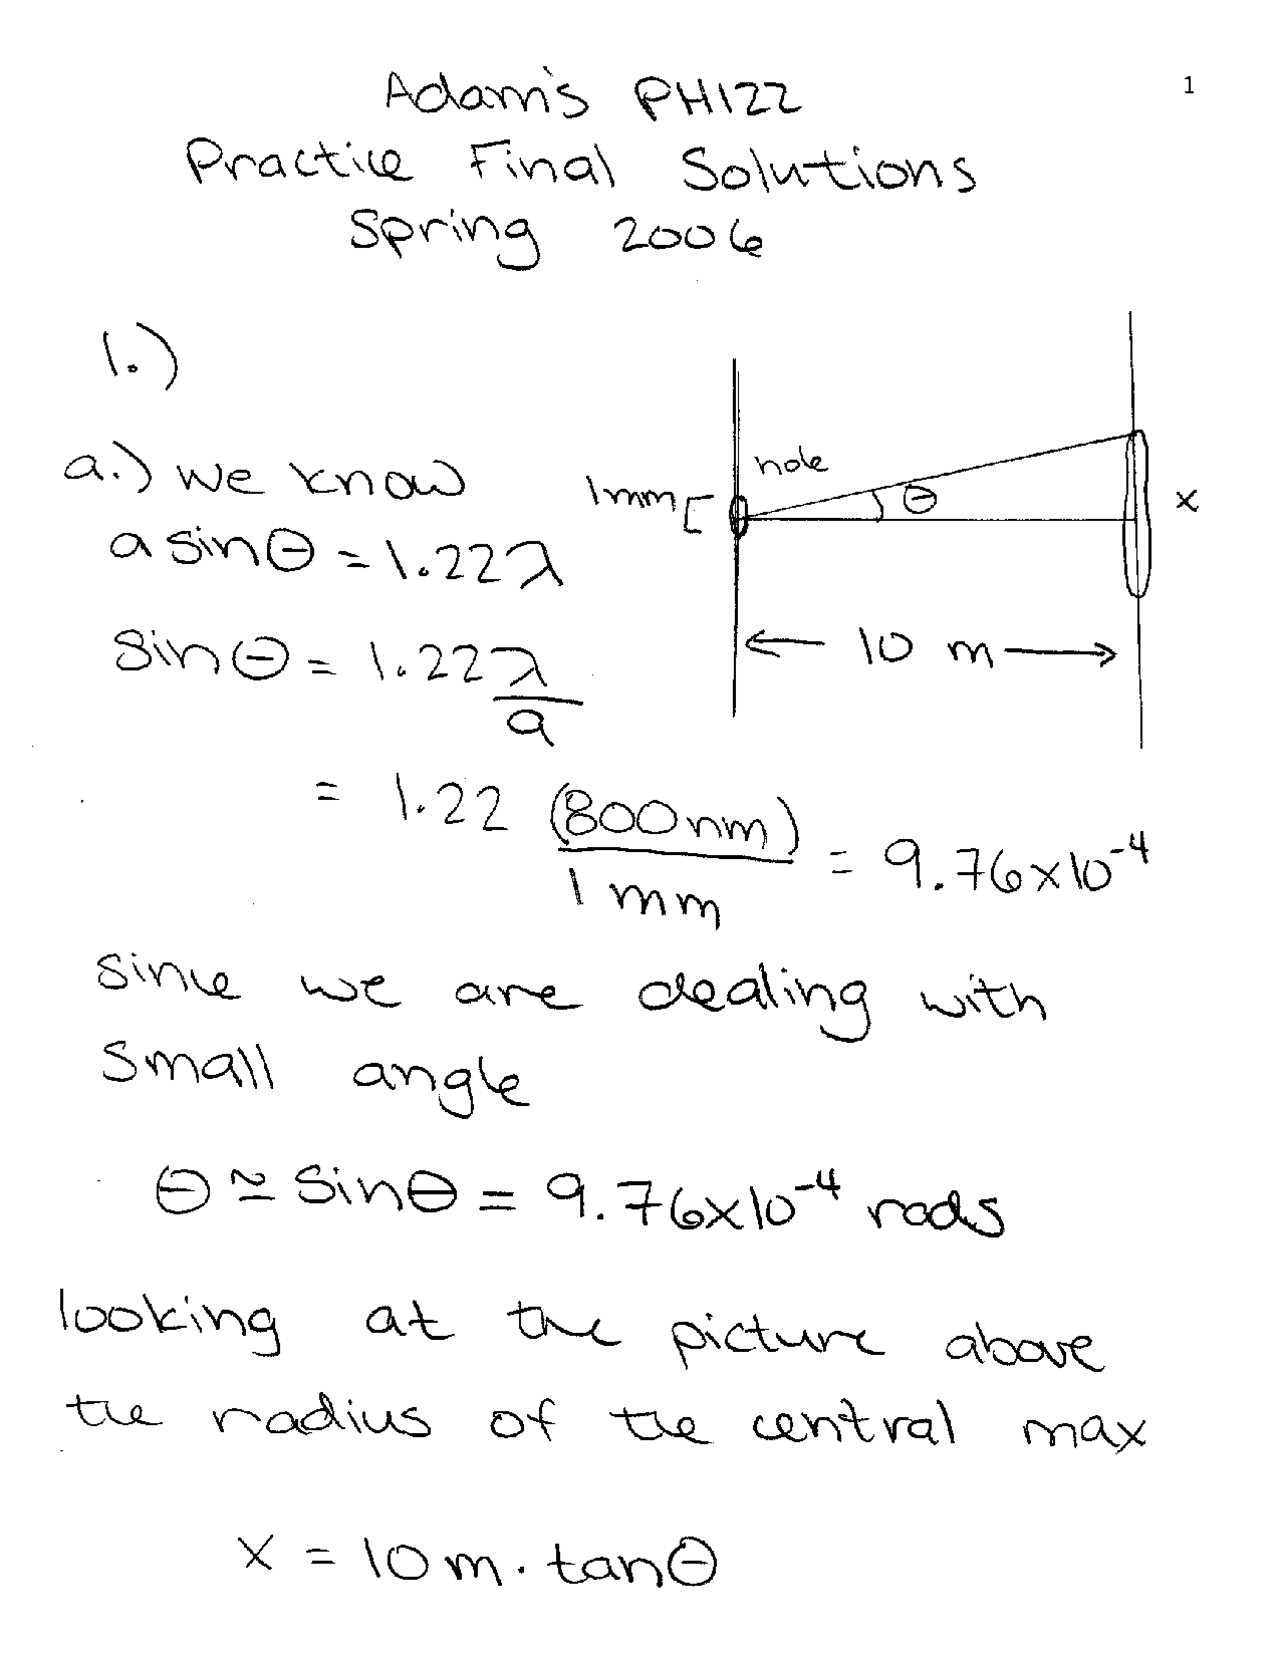 Adam's PH122
1
Practice Final Solutions
Spring 2006
1.)
hole
a.) we know
1mm [
θ
x
a sinθ = 1.22λ
← 10 m →
sinθ = 1.22 λ
a
= 1.22 (800nm)
1 mm
= 9.76x10⁻⁴
since we are dealing with
small angle
θ ≃ sinθ = 9.76x10⁻⁴ rads
looking at the picture above
the radius of the central max
x = 10 m · tanθ